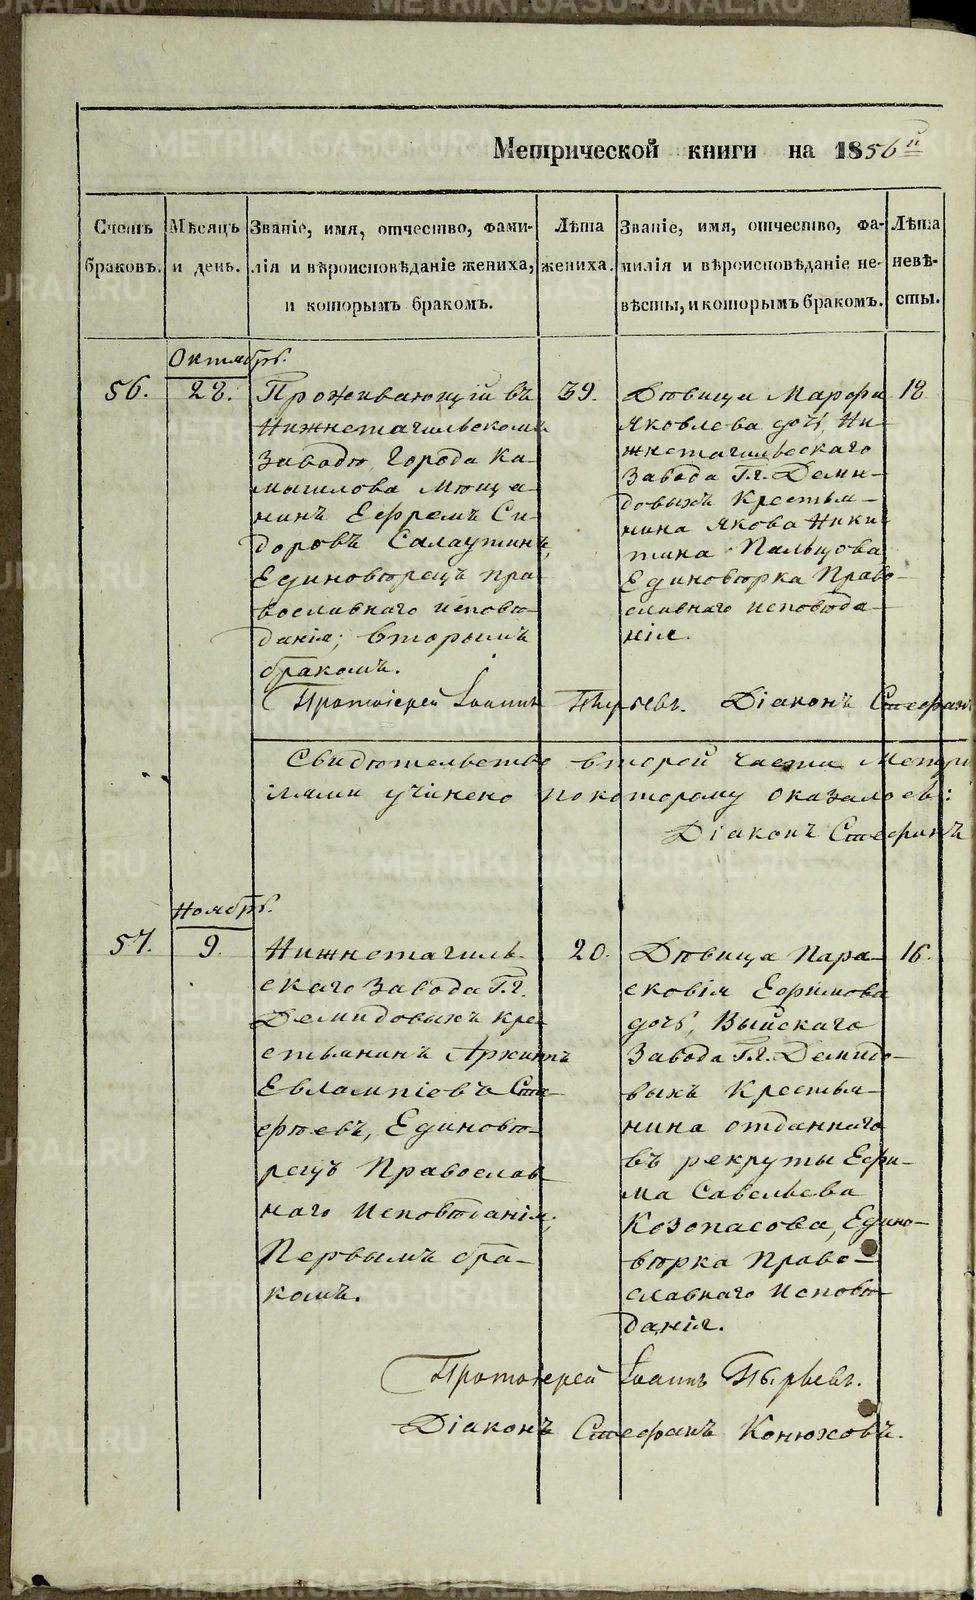 METRIKI.GASO-URAL.RU
Метрической книги на 1856й
Счетъ браковъ.
Мѣсяцъ и день.
Званіе, имя, отчество, фами-
лія и вѣроисповѣданіе жениха,
и которымъ бракомъ.
Лѣта жениха.
Званіе, имя, отчество, фа-
милія и вѣроисповѣданіе не-
вѣсты, и которымъ бракомъ.
Лѣта невѣ-
сты.
Октябрь.
56.
28.
Проживающій въ
Нижнетагильскомъ
Заводѣ, города Ка-
мышлова мѣща-
нинъ Ефремъ Си-
доровъ Салаутинъ,
Единовѣрецъ пра-
вославнаго исповѣ-
данія; вторымъ
бракомъ.
39.
Дѣвица Марфа
Яковлева дочь, Ни-
жнетагильскаго
Завода Г.г. Деми-
довыхъ Крестья-
нина Якова Ники-
тина Пальцова
Единовѣрка Право-
славнаго исповѣда-
нія.
18
Протоіерей Іоаннъ Пырьевъ. Діаконъ Стефанъ
Свидѣтельство второй части Метри
лями учинено по которому оказалось:
Діаконъ Стефанъ
Ноябрь.
57.
9.
Нижнетагиль-
скаго Завода Г.г.
Демидовыхъ кре-
стьянинъ Архипъ
Евлампіевъ Ста-
фѣевъ, Единовѣ-
рецъ Православ-
наго Исповѣданія;
Первымъ бра-
комъ.
20.
Дѣвица Пара-
сковія Ефимова
дочь, Выйскаго
Завода Г.г. Демидо-
выхъ Крестья-
нина отданнаго
въ рекруты Ефи-
ма Савельева
Козопасова, Едино-
вѣрка Право-
славнаго Исповѣ-
данія.
16.
Протоіерей Іоаннъ Пырьевъ.
Діаконъ Стефанъ Конюховъ.